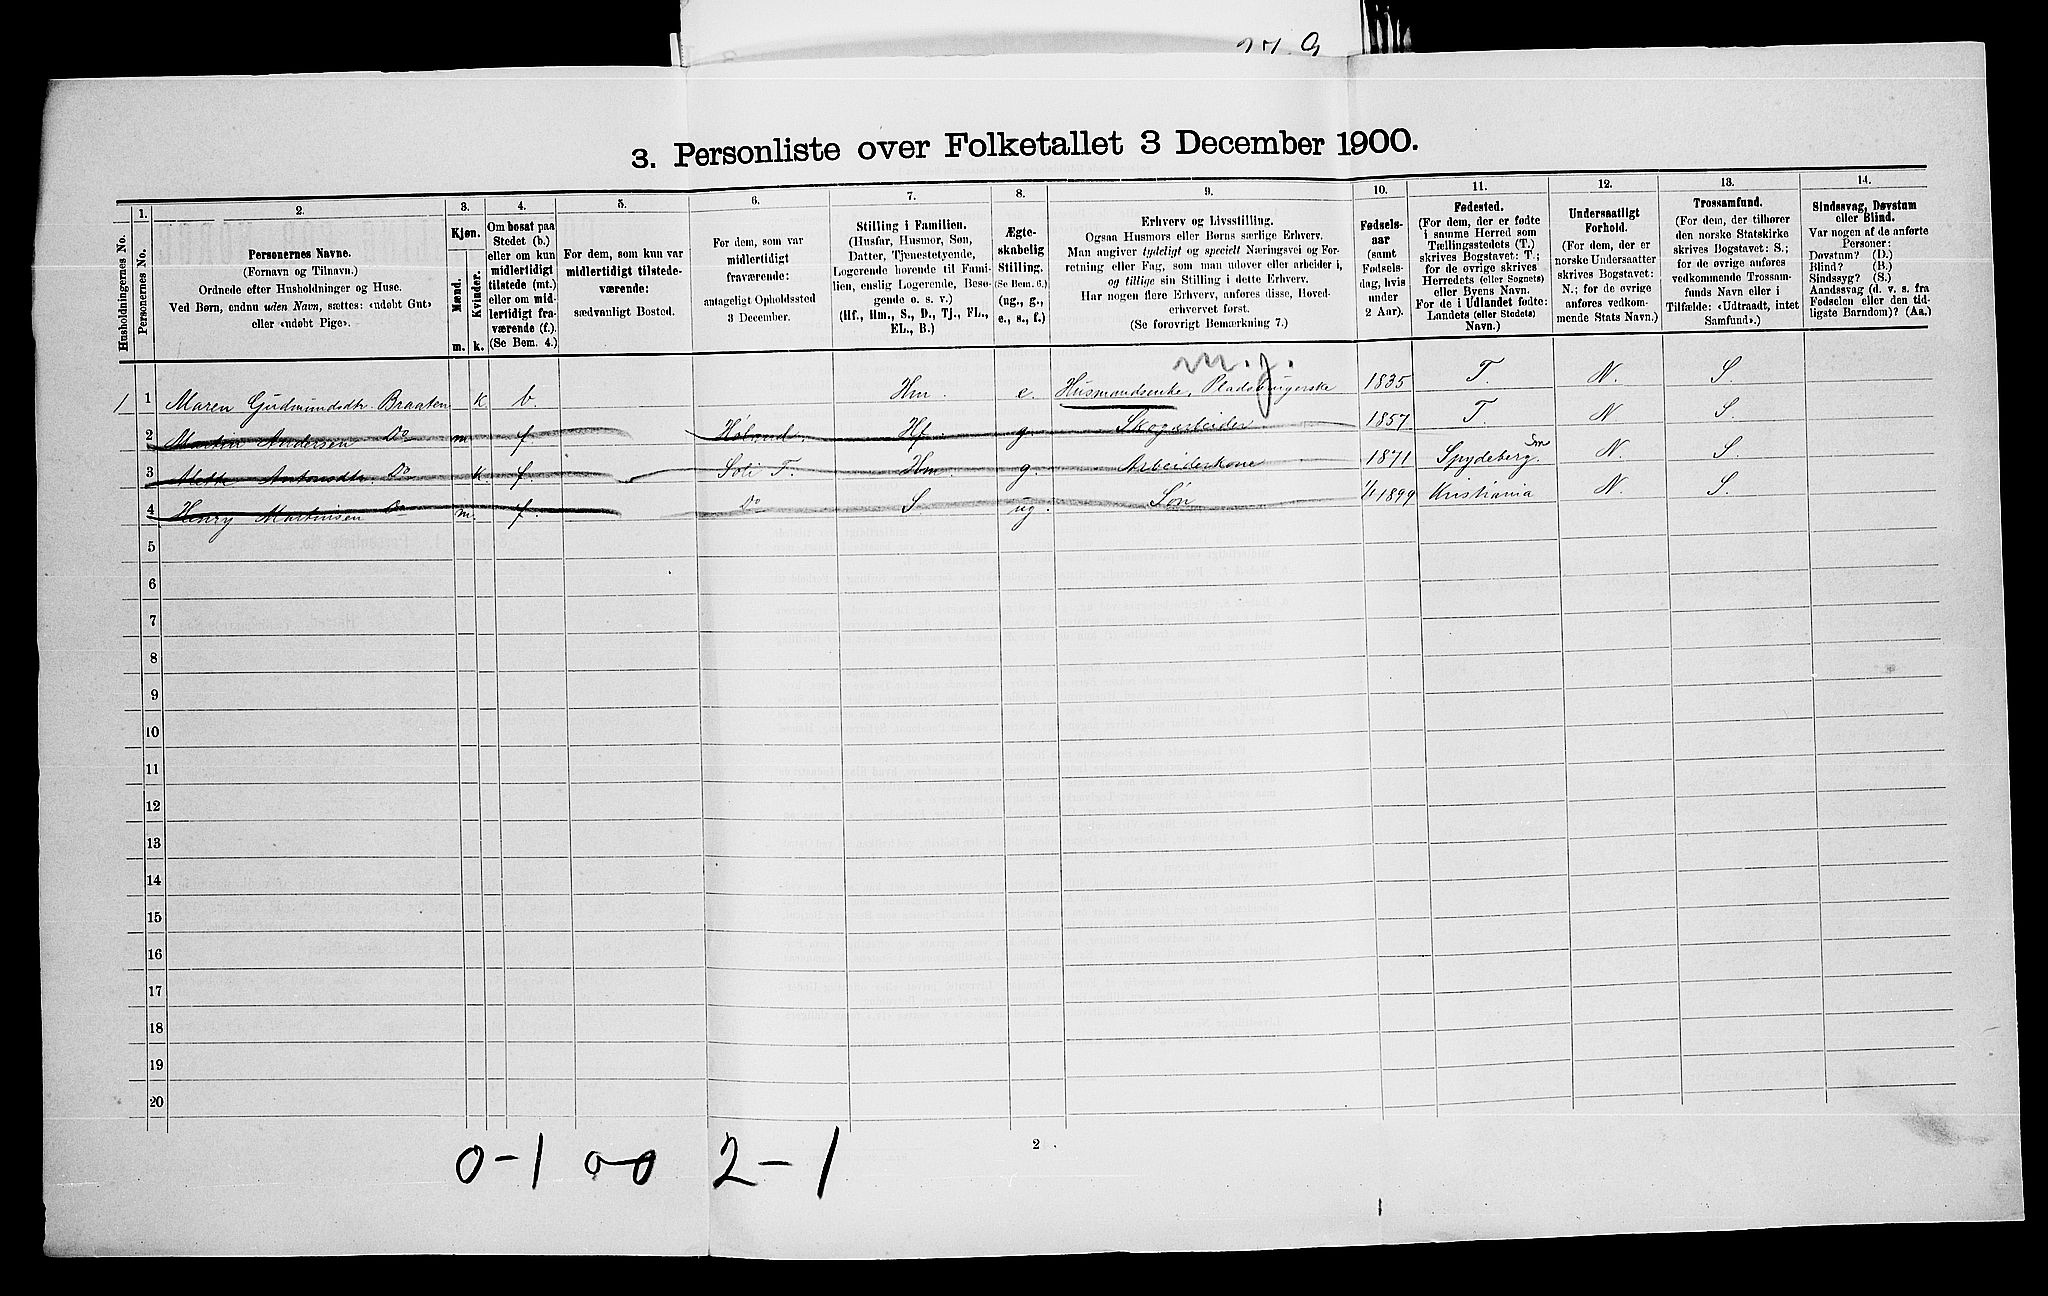 3. Personliste over Folketallet 3 December 1900.
Husholdningernes No.
1. Personernes No.
2. Personernes Navne. (Fornavn og Tilnavn.) Ordnede efter Husholdninger og Huse. Ved Børn, endnu uden Navn, sættes: «udøbt Gut» eller «udøbt Pige».
3. Kjøn. Mænd. m. Kvinder. k.
4. Om bosat paa Stedet (b.) eller om kun midlertidigt tilstede (mt.) eller om midlertidigt fraværende (f.) (Se Bem. 4.)
5. For dem, som kun var midlertidigt tilstedeværende: sædvanligt Bosted.
6. For dem, som var midlertidigt fraværende: antageligt Opholdssted 3 December.
7. Stilling i Familien. (Husfar, Husmor, Søn, Datter, Tjenestetyende, Logerende hørende til Familien, enslig Logerende, Besøgende o. s. v.) (Hf., Hm., S., D., Tj., FL., EL., B.)
8. Ægteskabelig Stilling. (Se Bem. 6.) (ug., g., e., s., f.)
9. Erhverv og Livsstilling. Ogsaa Husmors eller Børns særlige Erhverv. Man angiver tydeligt og specielt Næringsvei og Forretning eller Fag, som man udover eller arbeider i, og tillige sin Stilling i dette Erhverv. Har nogen flere Erhverv, anføres disse, Hovederhvervet først. (Se forøvrigt Bemærkning 7.)
10. Fødselsaar (samt Fødselsdag, hvis under 2 Aar).
11. Fødested. (For dem, der er fødte i samme Herred som Tællingsstedets (T.) skrives Bogstavet: T.; for de øvrige skrives Herredets (eller Sognets) eller Byens Navn. For de i Udlandet fødte: Landets (eller Stedets) Navn.)
12. Undersaatligt Forhold. (For dem, der er norske Undersaatter skrives Bogstavet: N.; for de øvrige anføres vedkommende Stats Navn.)
13. Trossamfund. (For dem, der tilhører den norske Statskirke skrives Bogstavet: S.; for de øvrige anføres vedkommende Trossamfunds Navn eller i Tilfælde: «Udtraadt, intet Samfund».)
14. Sindssvag, Døvstum eller Blind. Var nogen af de anførte Personer: Døvstum? (D.) Blind? (B.) Sindssyg? (S.) Aandssvag (d. v. s. fra Fødselen eller den tidligste Barndom)? (Aa.)
m.j.
1 1 Maren Gudmundsdtr. Braaten k b. Hm. e. Husmandsenke, Pladsbrugerske 1835 T. N. S.
2 Martin Andersen Do m f Høland Hf. g. Skogarbeider 1857 T. N S.
3 Mette Antonsdtr. Do k f Soli T. Hm g. Arbeiderkone 1871 Spydeberg. Sm N. S.
4 Henry Martinsen Do m. f. Do S. ug. Søn 1/1 1899 Kristiania N. S.
5
6
7
8
9
10
11
12
13
14
15
16
17
18
19
20
2
0-1 00 2-1